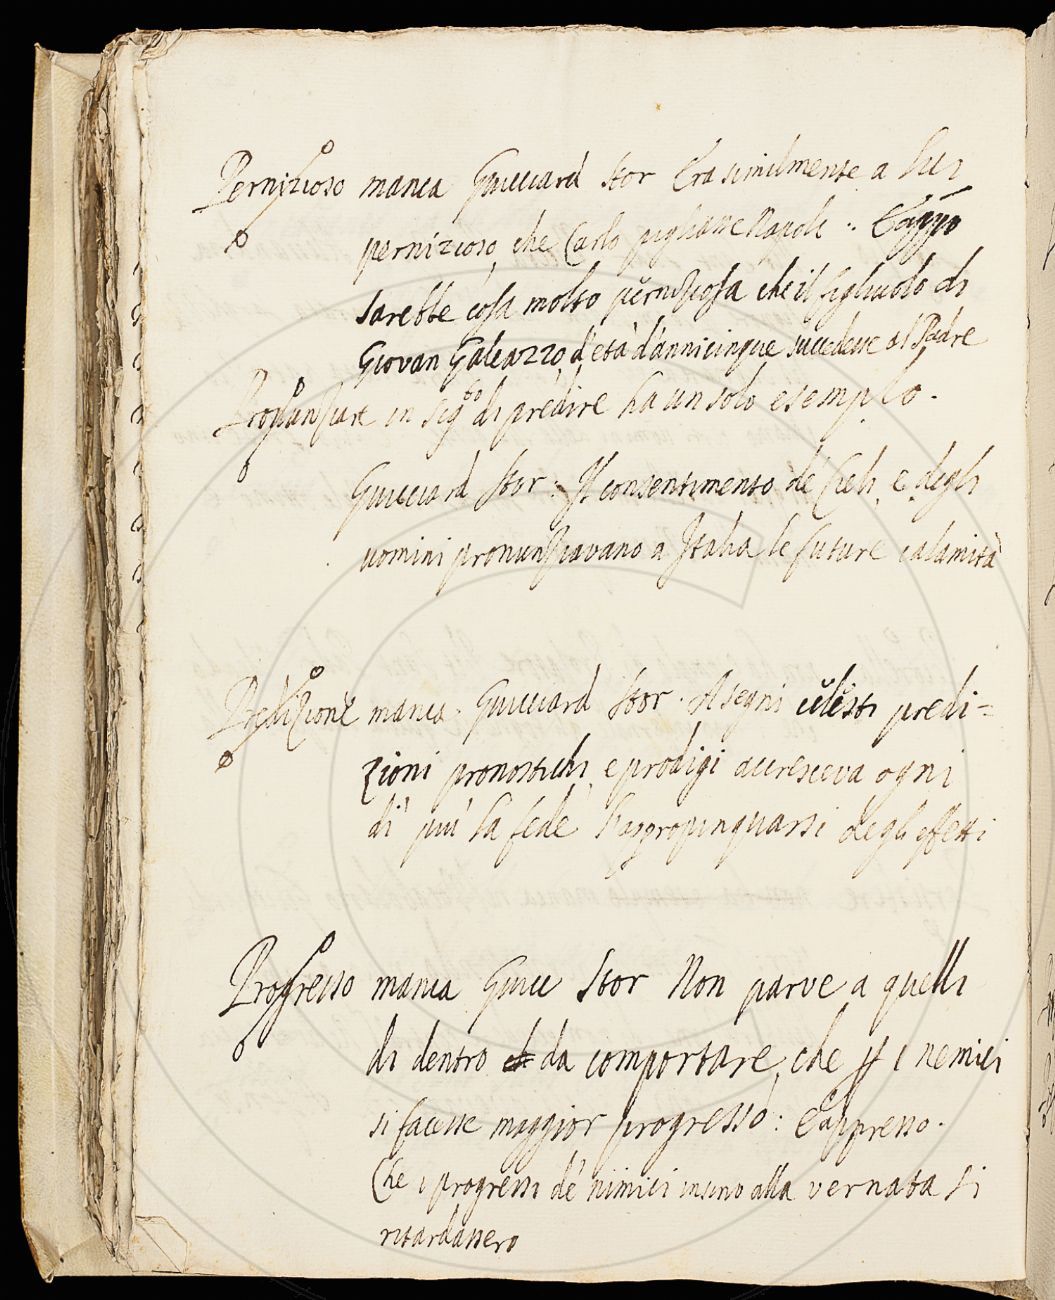 Pernizioso manca Guicciard Stor Era similmente a lui
pernizioso, che Carlo pigliasse Napoli :. E appo
sarebbe cosa molto perniziosa che il figliuolo di
Giovan Galeazzo, d'età d'anni cinque succedesse al Padre
Pronunziare in sig.to di predire ha un solo esempio.
Guicciard Stor: Il consentimento de' Cieli, e degli
uomini pronunziavano a Italia le future calamità
Predizione manca. Guicciard Stor. A segni celesti predi=
zioni pronostichi, e prodigi accresceva ogni
dì più la fede l'appropinquarsi degli effetti
Progresso manca Guicc Stor Non parve a quelli
di dentro da comportare, che i nemici
si facesse maggior progresso: E appresso.
Che i progressi de' nimici insino alla vernata si
ritardassero